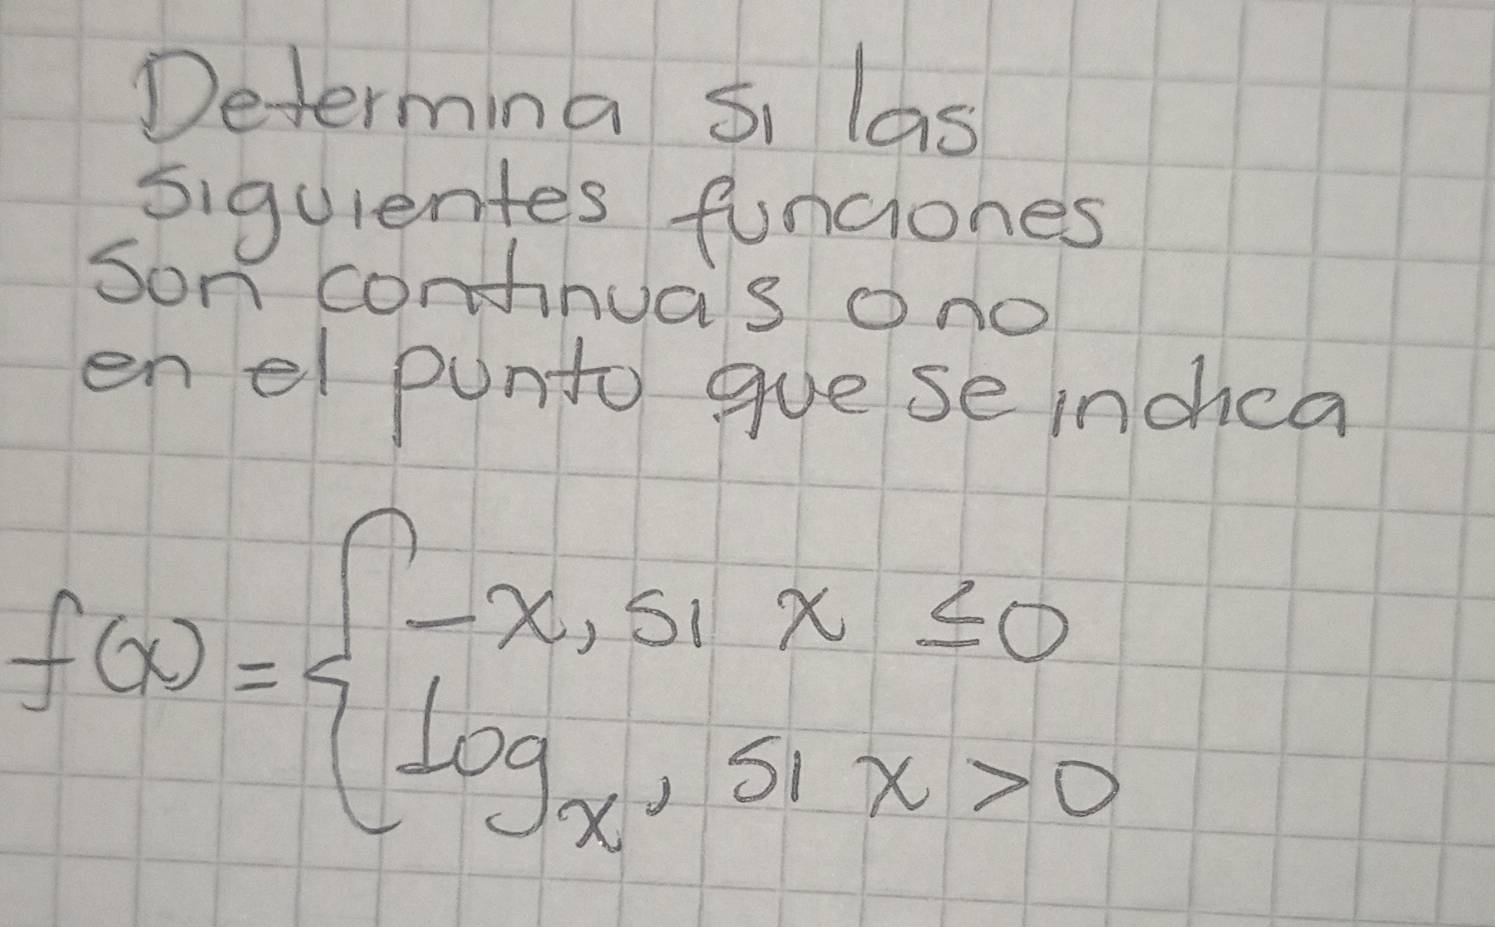 Determina si las
siguientes funciones
son continuas o no
en el punto que se indica
f(x) = { -x, si x ≤ 0
log x, si x > 0